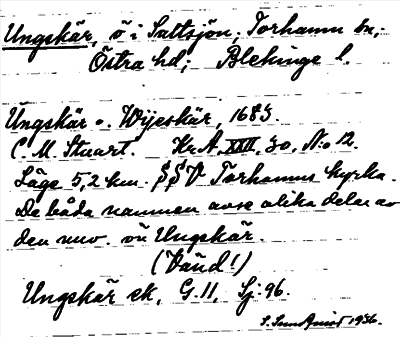 Ungskär, ö i Saltsjön; Torhamn sn,
Östra hd; Blekinge l.
Ungskär o. Wijeskär, 1683.
C. M. Stuart. Kr.A. XXII, 30, N:o 12.
Läge 5,2 km. SSV Torhamns kyrka.
De båda namnen avse olika delar av
den nuv. ön Ungskär.
(Vänd!)
Ungskär ek, G. 11, Sj: 96.
S. Sundquist 1936.